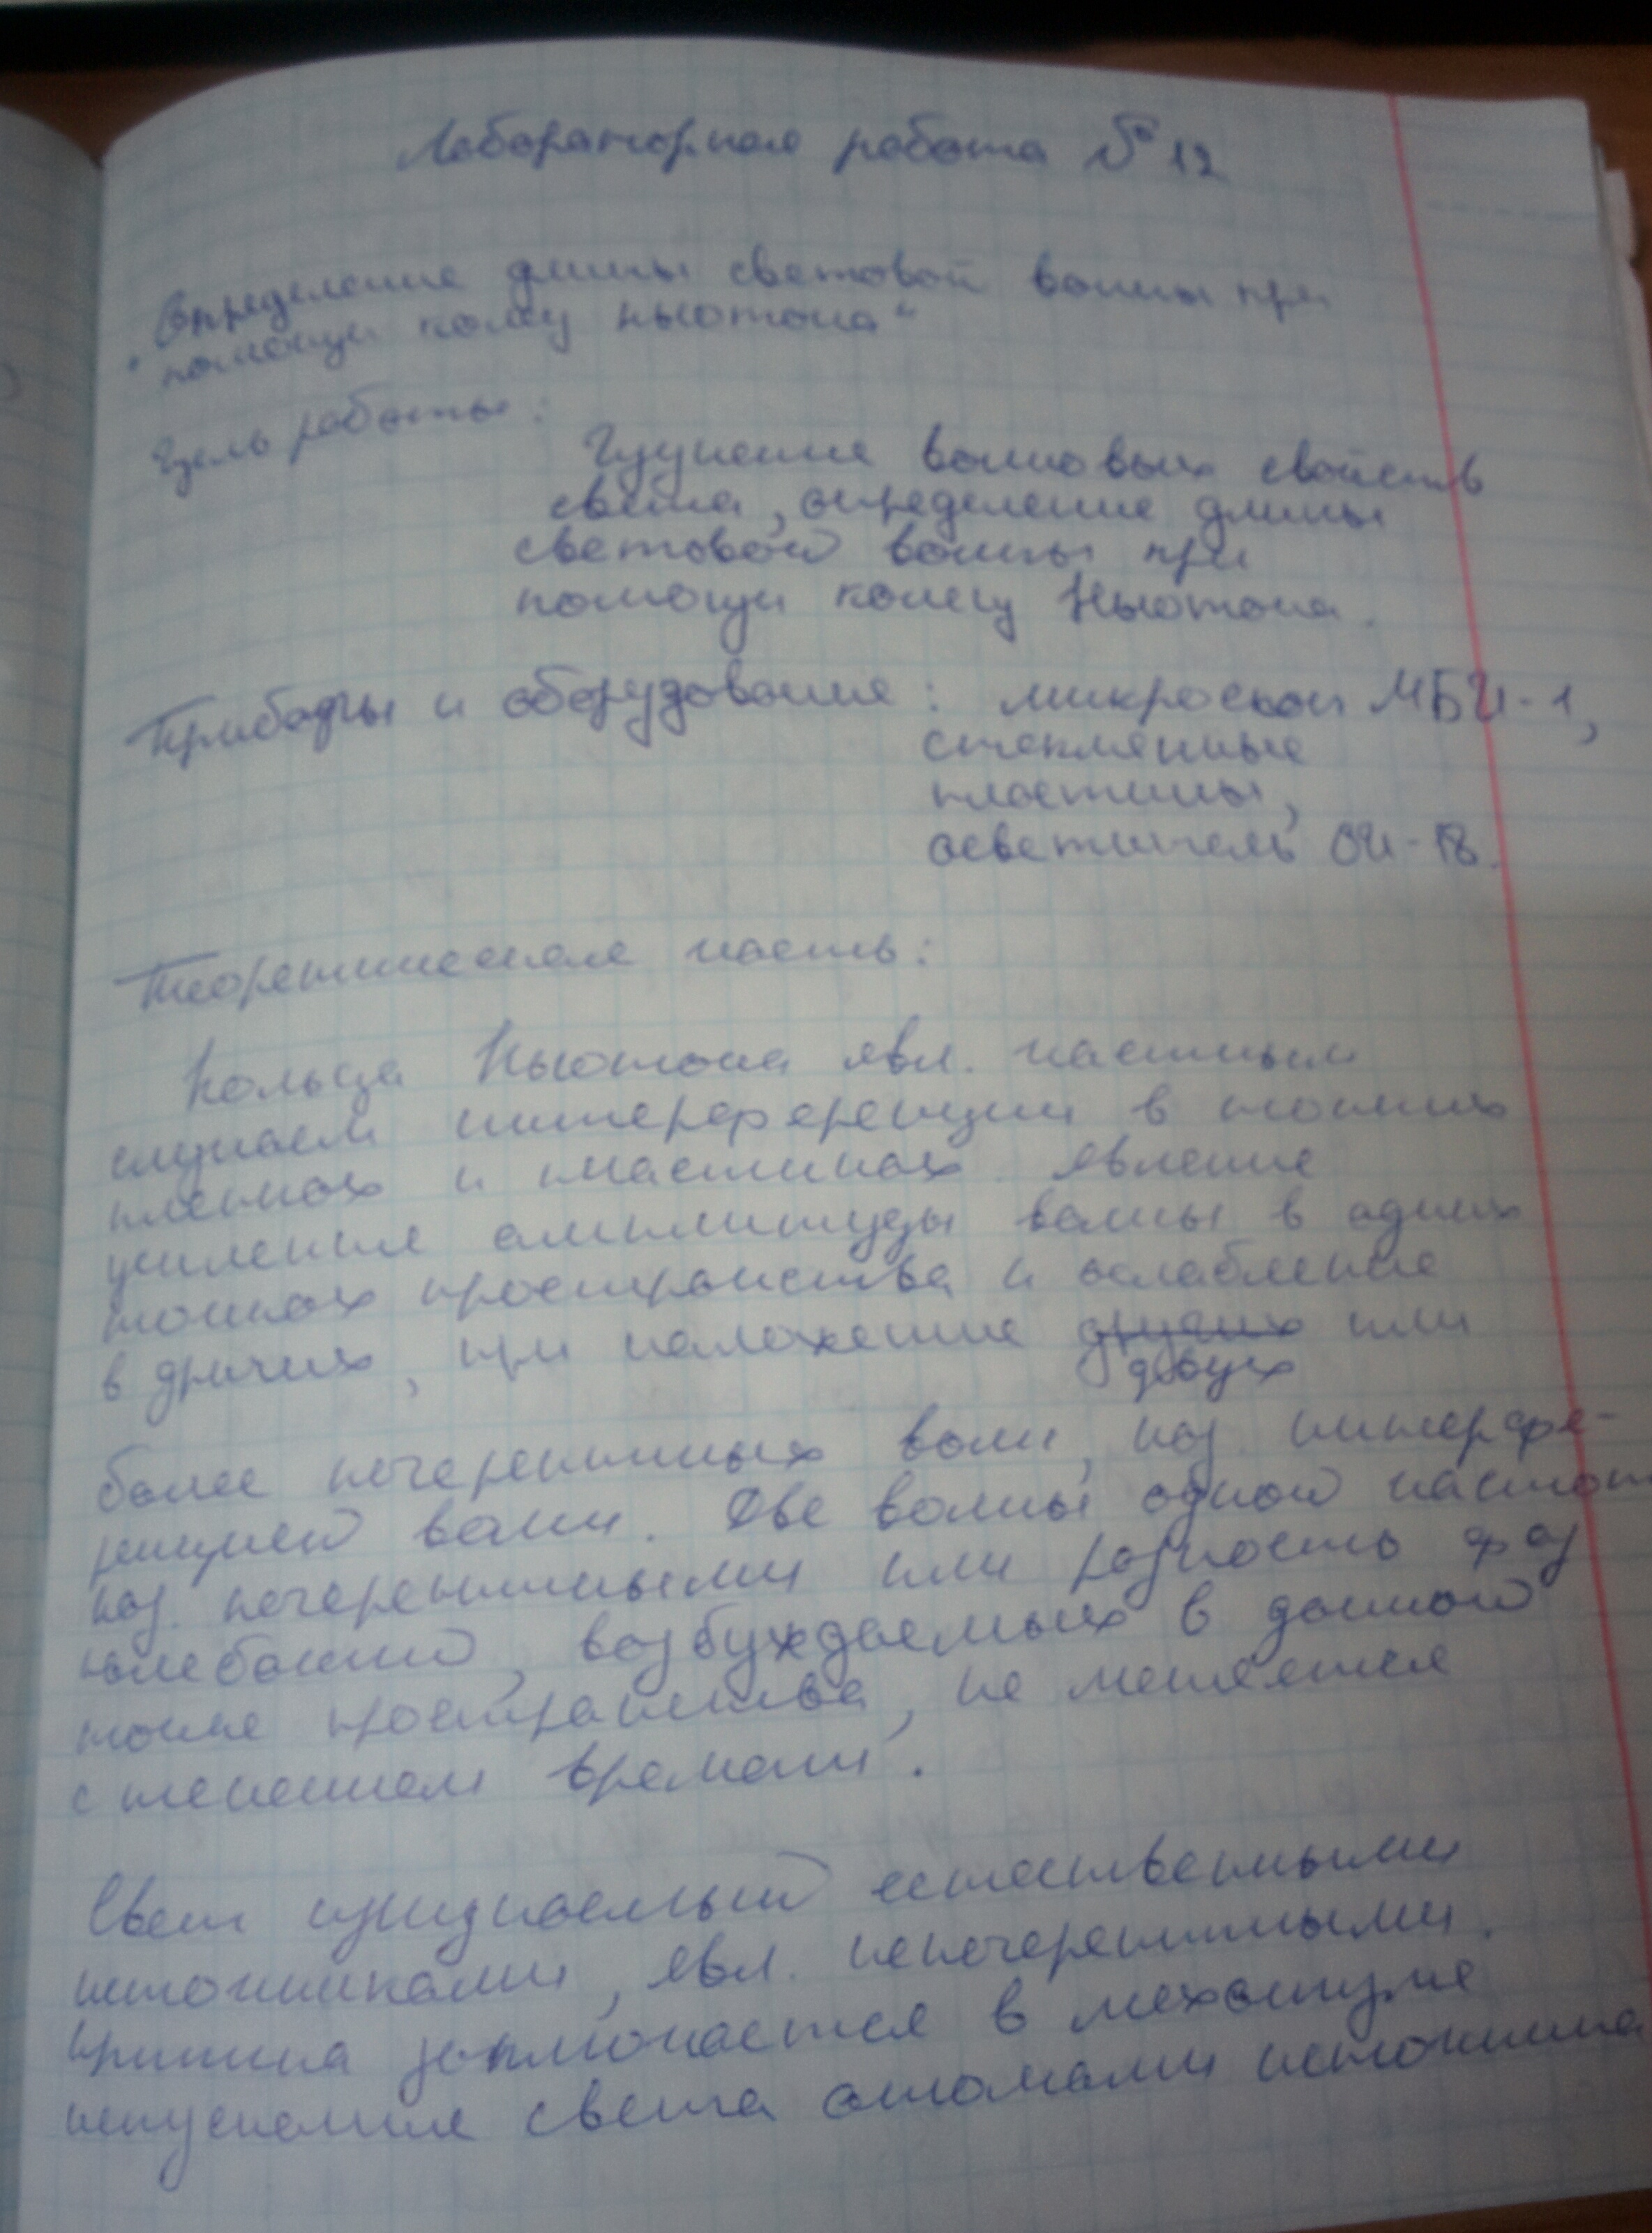 Лабораторная работа № 12
Определение длины световой волны при
"помощи колец ньютона"
Цель работы:
Изучение волновых свойств
света, определение длины
световой волны при
помощи колец Ньютона.
Приборы и оборудование: микроскоп МБИ-1,
стеклянные
пластины,
осветитель ОИ-18.
Теоретическая часть:
Кольца Ньютона явл. частным
случаем интерференции в тонких
пленках и пластинах. явление
усиления амплитуды волны в одних
точках пространства и ослабление
в других, при наложение других или
двух
более когерентных волн, наз. интерфе-
ренцией волн. Две волны одной частот
наз. когерентными или разность фаз
колебаний, возбуждаемых в данной
точке пространства, не меняется
с течением времени.
Свет излучаемый естественными
источниками, явл. некогерентными.
Причина заключается в механизме
испускания света атомами источника